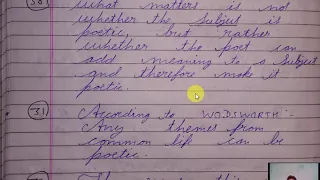 30) what matters is not
whether the subject is
poetic, but rather
whether the poet can
add meaning to a subject
and therefore make it
poetic.
31) According to WODSWORTH:-
Any themes from
common life can be
poetic.